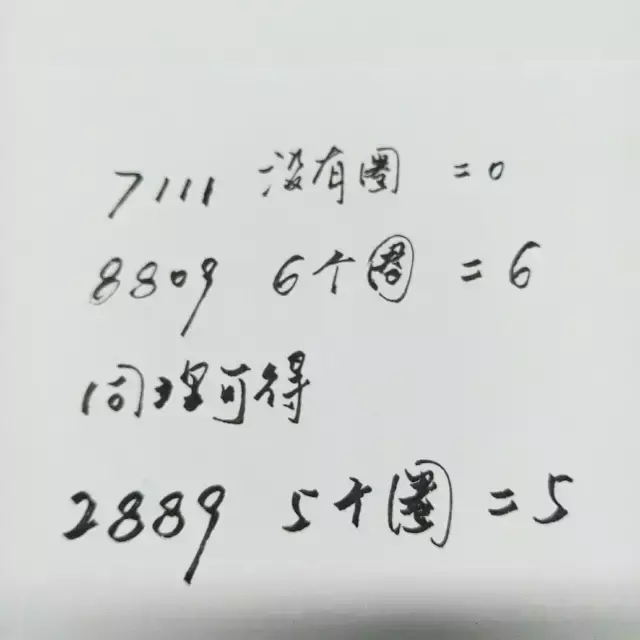 7111 没有圈 =0
8809 6个圈 =6
同理可得
2889 5个圈 =5